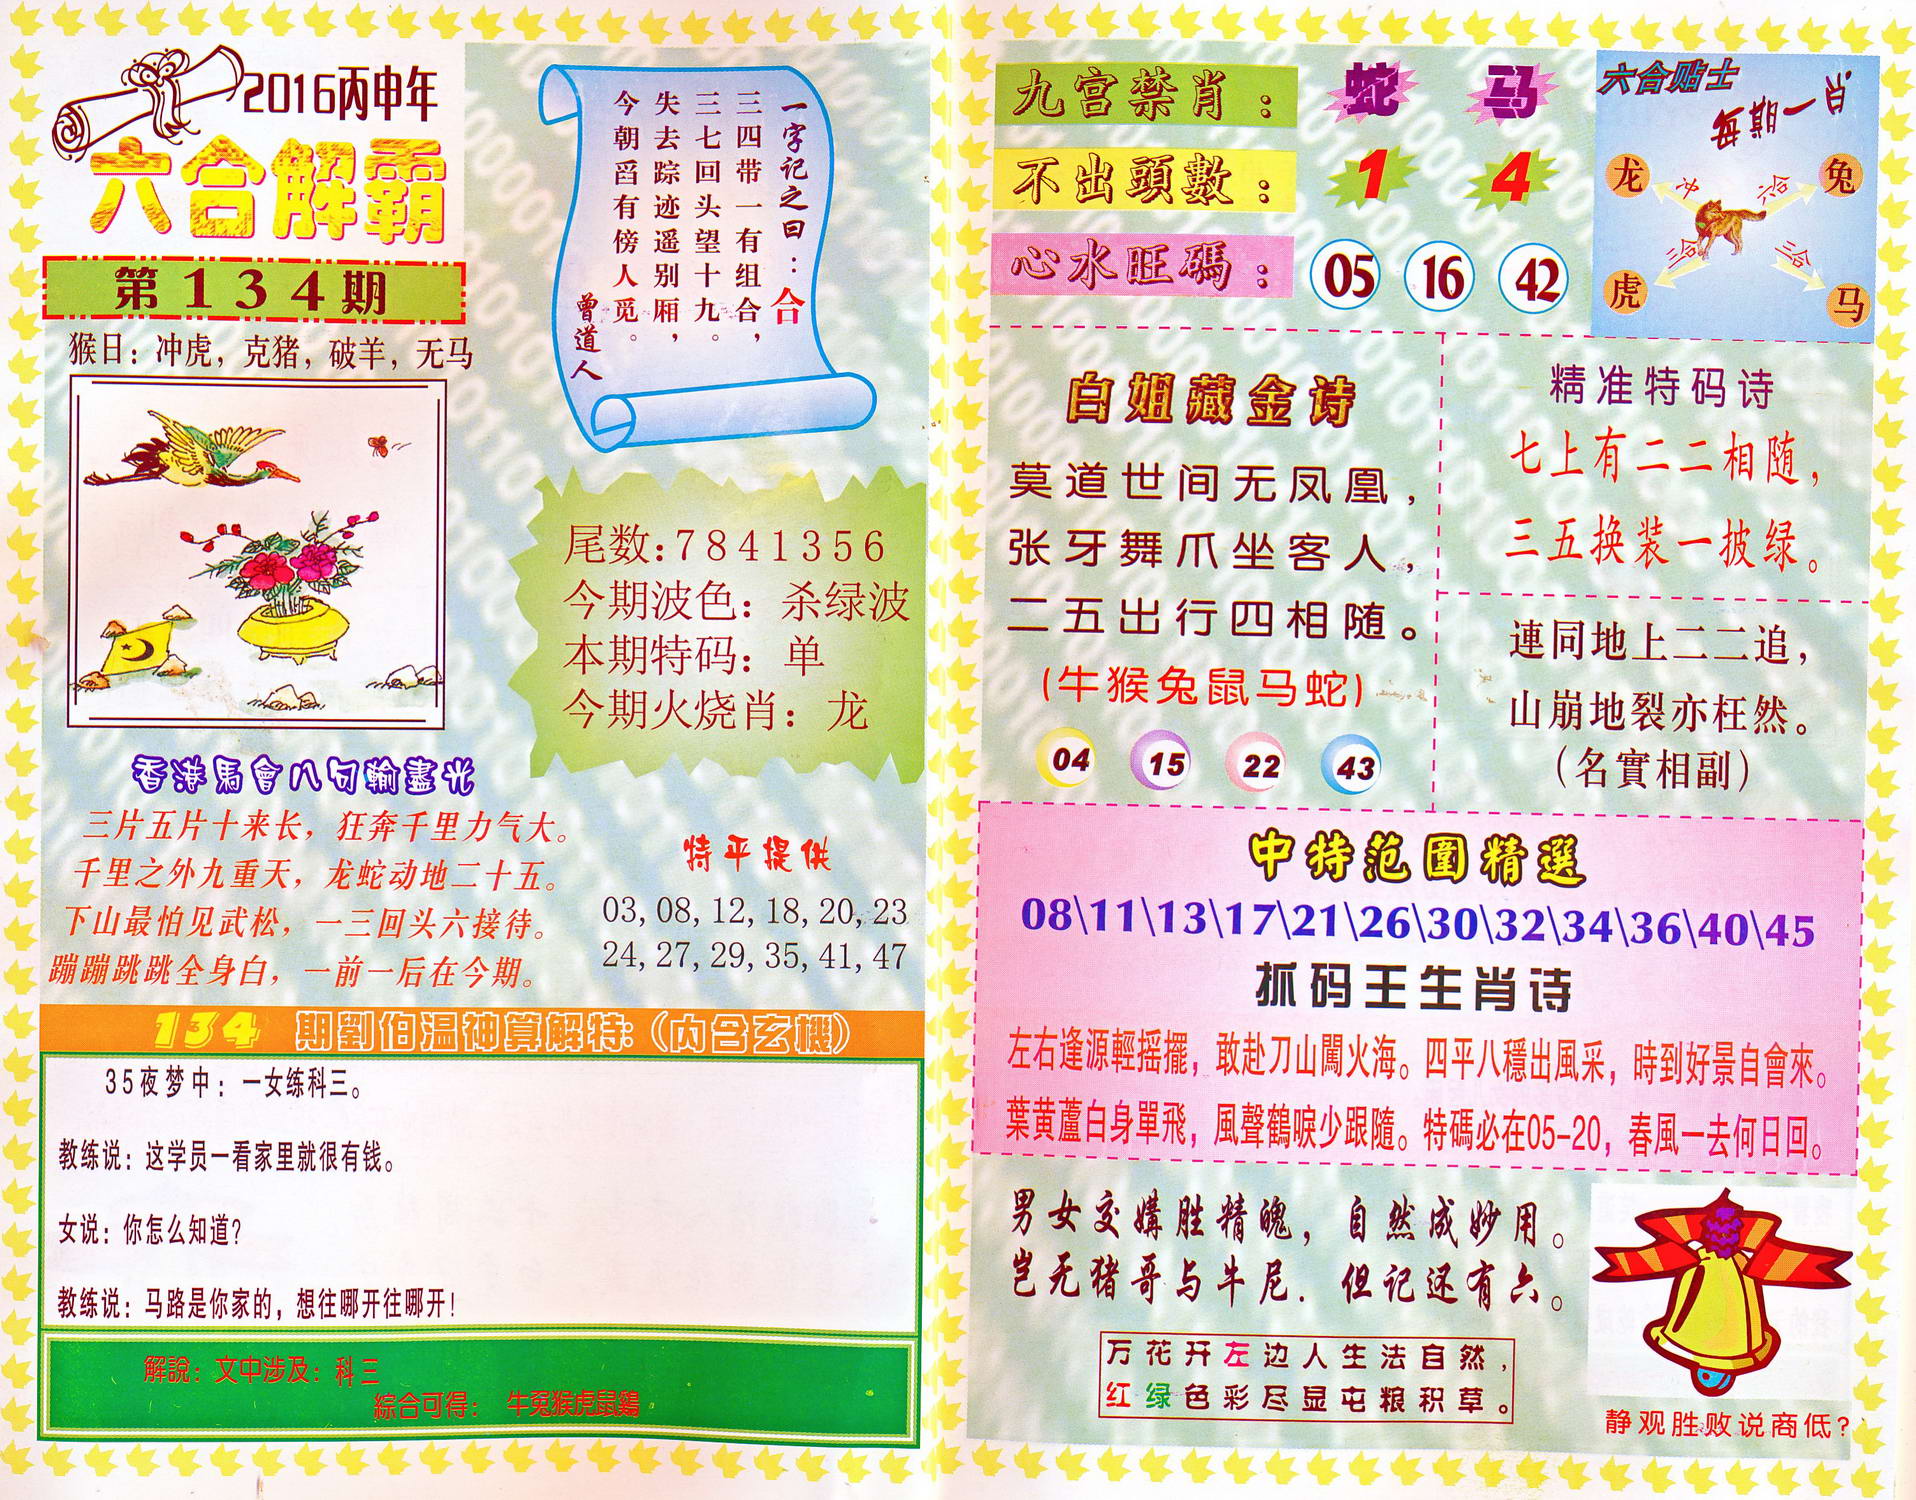 2016丙申年
六合解霸
第134期
猴日：冲虎，克猪，破羊，无马
一字记之曰：合
三四带一有组合，
三七回头望十九。
失去踪迹遥别厢，
今朝舀有傍人觅。
曾道人
尾数：7841356
今期波色：杀绿波
本期特码：单
今期火烧肖：龙
香港馬會八句輸盡光
三片五片十来长，狂奔千里力气大。
千里之外九重天，龙蛇动地二十五。
下山最怕见武松，一三回头六接待。
蹦蹦跳跳全身白，一前一后在今期。
特平提供
03,08,12,18,20,23
24,27,29,35,41,47
134 期劉伯温神算解特：（内含玄機）
35夜梦中：一女练科三。
教练说：这学员一看家里就很有钱。
女说：你怎么知道？
教练说：马路是你家的，想往哪开往哪开！
解說：文中涉及：科三
綜合可得： 牛兔猴虎鼠鷄
九宫禁肖：蛇 马
不出頭數：1 4
心水旺碼：05 16 42
六合贴士
每期一肖
龙 冲 六合 兔
虎 三合 三合 马
白姐藏金诗
莫道世间无凤凰，
张牙舞爪坐客人，
二五出行四相随。
(牛猴兔鼠马蛇)
04 15 22 43
精准特码诗
七上有二二相随，
三五换装一披绿。
連同地上二二追，
山崩地裂亦枉然。
（名實相副）
中特范圍精選
08\11\13\17\21\26\30\32\34\36\40\45
抓码王生肖诗
左右逢源輕摇擺，敢赴刀山闖火海。四平八穩出風采，時到好景自會來。
葉黄蘆白身單飛，風聲鶴唳少跟隨。特碼必在05-20，春風一去何日回。
男女交媾胜精魄，自然成妙用。
岂无猪哥与牛尼．但记还有六。
万花开左边人生法自然，
红绿色彩尽显屯粮积草。
静观胜败说商低？